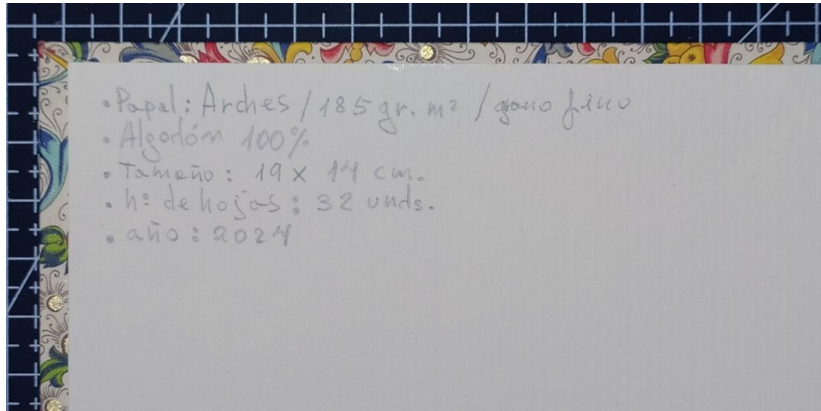 • Papel: Arches / 185 gr. m² / grano fino
• Algodón 100%
• Tamaño: 19 x 14 cm.
• nº de hojas: 32 unds.
• año: 2024